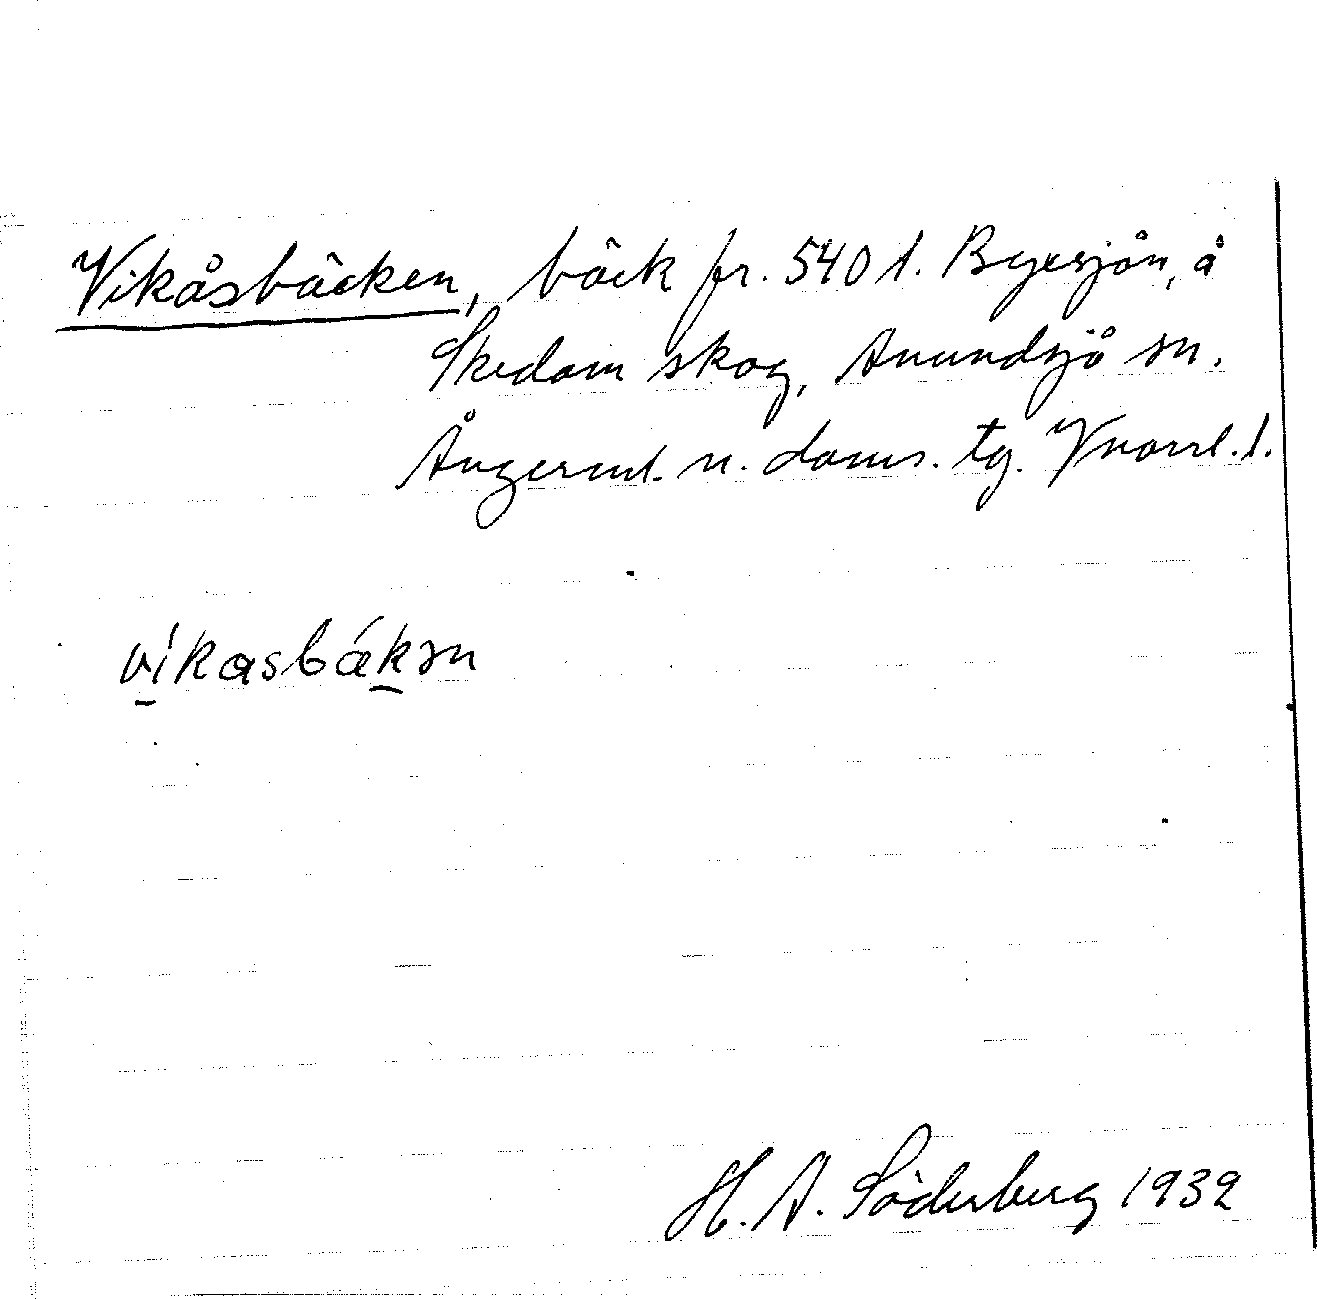 Vikåsbäcken, bäck fr. 540 t. Byesjön, å
Skedom skog, Anundsjö sn.
Ångerml. n. doms. tg. Vnorrl. l.
víkasbákən
H. A. Söderberg 1932